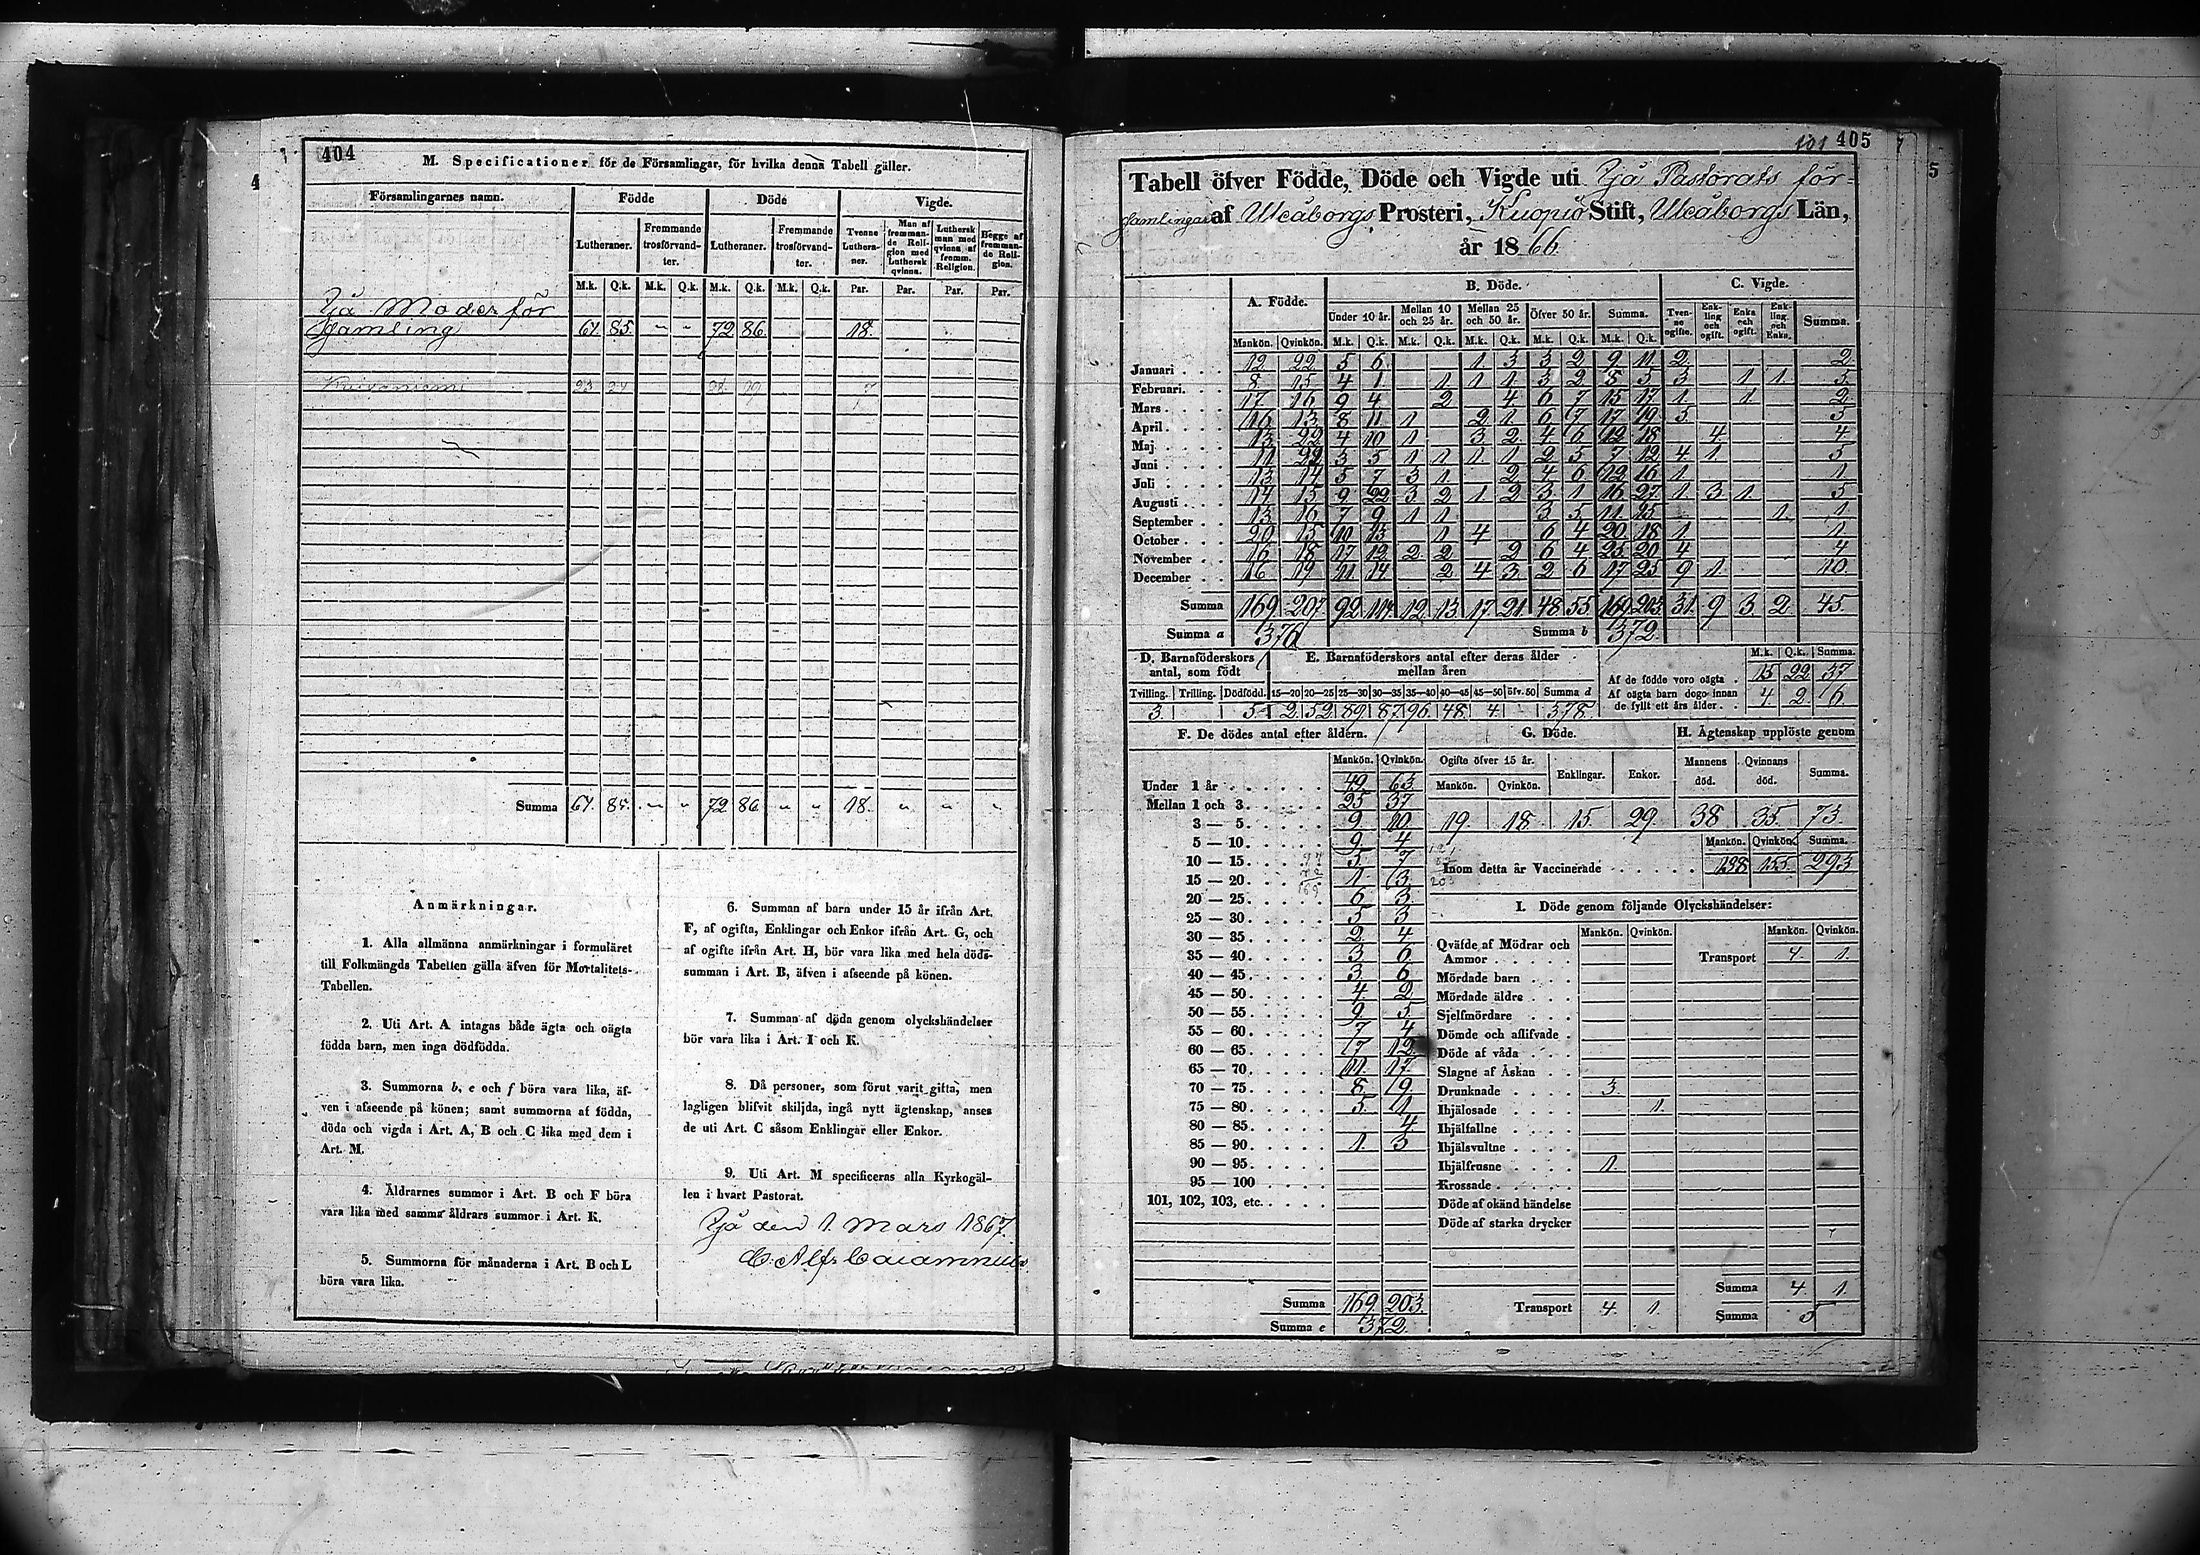 404
M. Specificationer för de Församlingar, för hvilka denna Tabell gäller.
Församlingarnes namn. Födde Döde Vigde.
Lutheraner. Fremmande trosförvandter. Lutheraner. Fremmande trosförvandter. Tvenne Lutheraner. Man af fremmande Religion med Luthersk qvinna. Luthersk man med qvinna af fremm. Religion. Begge af fremmande Religion.
M.k. Q.k. M.k. Q.k. M.k. Q.k. M.k. Q.k. Par. Par. Par. Par.
Ijå Moder för
samling 61. 85. " " 72 86 18.
Kuivaniemi
Summa 61. 85. " " 72 86 " " 18. " " "
Anmärkningar.
1. Alla allmänna anmärkningar i formuläret
till Folkmängds Tabellen gälla äfven för Mortalitets-
Tabellen.
2. Uti Art. A intagas både ägta och oägta
födda barn, men inga dödfödda.
3. Summorna b, e och f böra vara lika, äf-
ven i afseende på könen; samt summorna af födda,
döda och vigda i Art. A, B och C lika med dem i
Art. M.
4. Åldrarnes summor i Art. B och F böra
vara lika med samma åldrars summor i Art. K.
5. Summorna för månaderna i Art. B och L
böra vara lika.
6. Summan af barn under 15 år ifrån Art.
F, af ogifta, Enklingar och Enkor ifrån Art. G, och
af ogifte ifrån Art. H, bör vara lika med hela döds-
summan i Art. B, äfven i afseende på könen.
7. Summan af döda genom olyckshändelser
bör vara lika i Art. I och K.
8. Då personer, som förut varit gifta, men
lagligen blifvit skiljda, ingå nytt ägtenskap, anses
de uti Art. C såsom Enklingar eller Enkor.
9. Uti Art. M specificeras alla Kyrkogäl-
len i hvart Pastorat.
Ijå den 1. Mars 1867.
101 405
Tabell öfver Födde, Döde och Vigde uti Ijå Pastorats för=
samlingar af Uleåborgs Prosteri, Kuopio Stift, Uleåborgs Län,
år 1866.
A. Födde. B. Döde. C. Vigde.
Under 10 år. Mellan 10 och 25 år. Mellan 25 och 50 år. Öfver 50 år. Summa. Tvenne ogifte. Enkling och ogift. Enka och ogift. Enkling och Enka. Summa.
Mankön. Qvinkön. M.k. Q.k. M.k. Q.k. M.k. Q.k. M.k. Q.k. M.k. Q.k.
Januari 12 22 5 6 1 3 3 2 9 11 2 2
Februari. 8 15 4 1 1 1 1 3 2 8 5 3 1 1 5
Mars 17 16 9 4 2 4 6 7 15 17 1 1 2
April 16 13 8 11 1 2 1 6 7 17 19 5 5
Maj 13 22 4 10 1 3 2 4 6 12 18 4 4
Juni 11 22 3 5 1 1 1 1 2 5 7 12 4 1 5
Juli 13 14 5 7 3 1 2 4 6 12 16 1 1
Augusti 14 15 9 22 3 2 1 2 3 1 16 27 1 3 1 5
September 13 16 7 9 1 1 3 5 11 1 1
October 20 15 10 13 1 4 6 4 20 18 1 1
November 16 18 17 12 2 2 2 6 4 25 20 4 4
December 16 19 11 14 2 4 3 2 6 17 25 9 1 10
Summa 169. 207. 92. 114. 12. 13. 17. 21. 48. 55 169 203 31. 9 3. 2. 45.
Summa a 376 Summa b 372.
D. Barnaföderskors antal, som födt E. Barnaföderskors antal efter deras ålder mellan åren M.k. Q.k. Summa.
Af de födde voro oägta 15 22 37
Tvilling. Trilling. Dödfödd. 15—20 20—25 25—30 30—35 35—40 40—45 45—50 öfv. 50 Summa d
Af oägta barn dogo innan de fyllt ett års ålder 4. 2. 6.
3. 5 2. 52. 89. 87. 96. 48. 4. 378.
F. De dödes antal efter åldern. G. Döde. H. Ägtenskap upplöste genom
Mankön. Qvinkön. Ogifte öfver 15 år. Mankön. Qvinkön. Enklingar. Enkor. Mannens död. Qvinnans död. Summa.
19. 18. 15. 29. 38. 35. 73.
Under 1 år 49. 63.
Mellan 1 och 3. 25 37
3 — 5. 9. 10.
5 — 10. 9. 4
10 — 15. 5. 7
15 — 20. 1 3
20 — 25. 6 3
25 — 30. 5 3
30 — 35. 2 4
35 — 40. 3 6
40 — 45. 3 6
45 — 50. 4. 2
50 — 55. 9 5
55 — 60. 7 4
60 — 65. 7 12
65 — 70. 11. 17
70 — 75. 8 9
75 — 80. 5. 1
80 — 85. 4
85 — 90. 1. 3
90 — 95.
95 — 100
101, 102, 103, etc.
Summa 169. 203.
Summa e 372.
Mankön. Qvinkön. Summa.
Inom detta år Vaccinerade 138 155. 293
I. Döde genom följande Olyckshändelser:
Mankön. Qvinkön. Mankön. Qvinkön.
Qväfde af Mödrar och Ammor Transport 4. 1.
Mördade barn
Mördade äldre
Sjelfmördare
Dömde och aflifvade
Döde af våda
Slagne af Åskan
Drunknade 3.
Ihjälosade 1.
Ihjälfallne
Ihjälsvultne
Ihjälfrusne 1.
Krossade
Döde af okänd händelse
Döde af starka drycker
Summa 4. 1.
Transport 4. 1. Summa 5